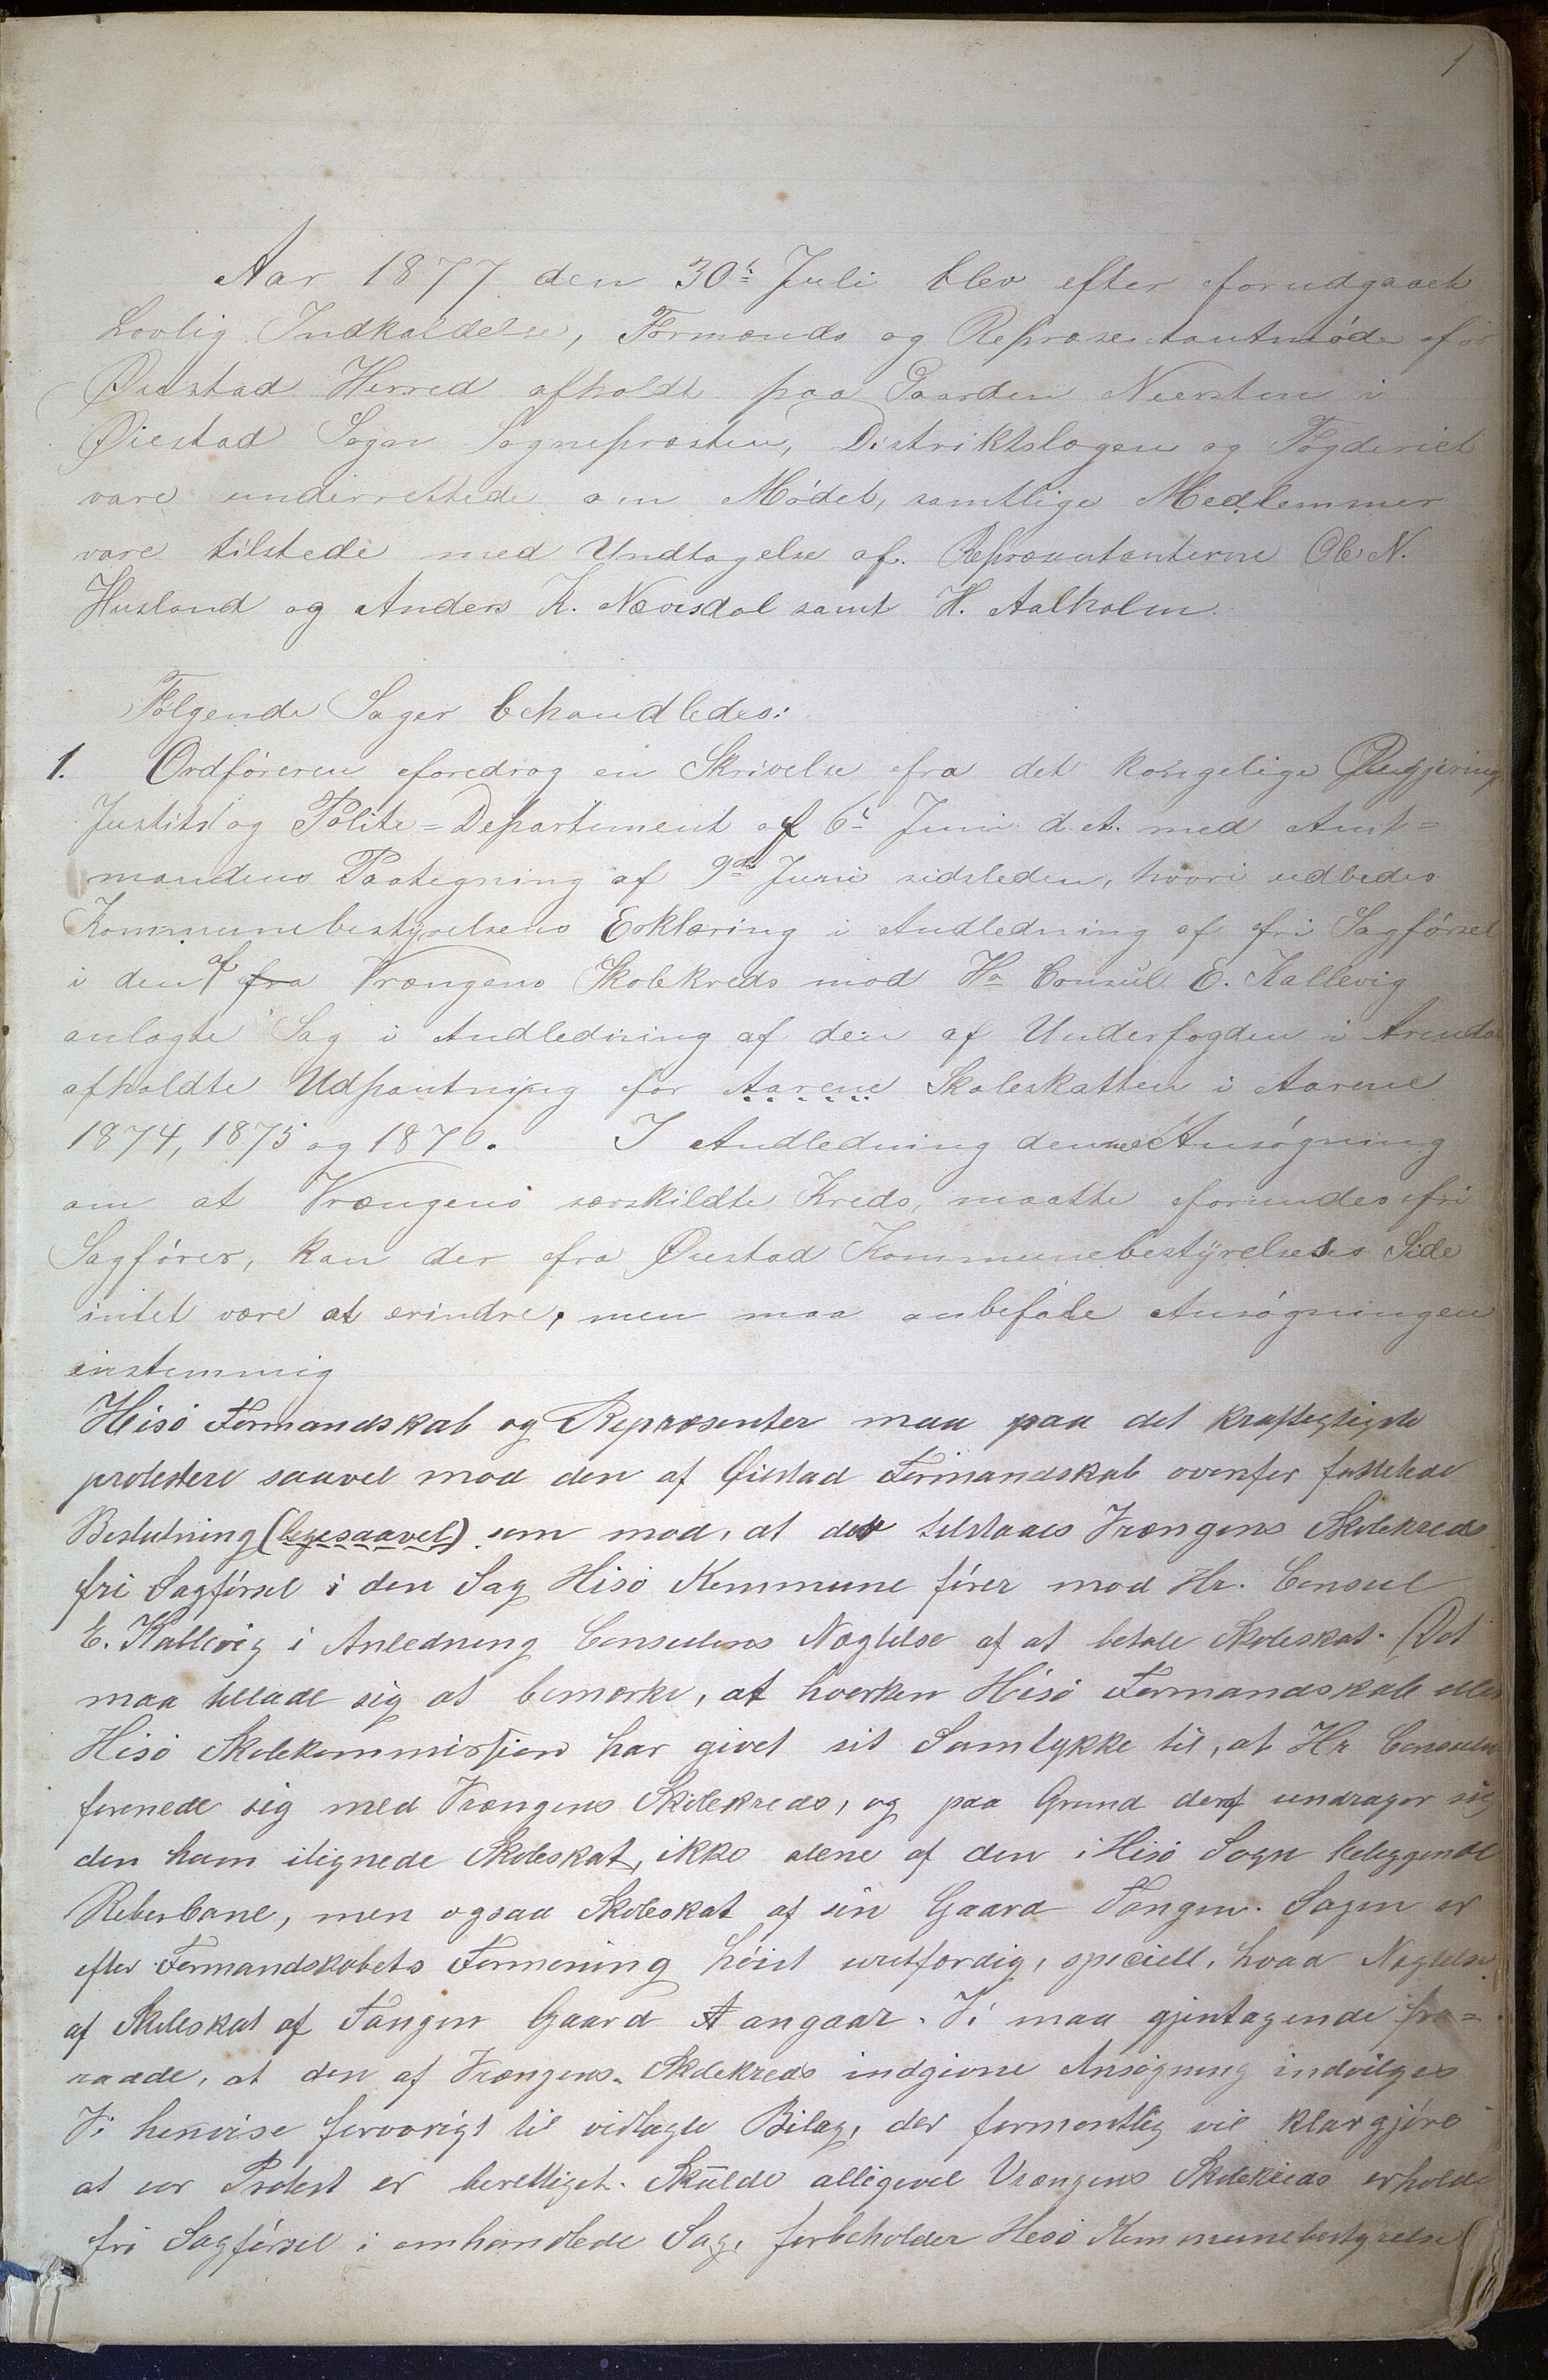 1
Aar 1877 den 30t Juli blev efter forudgaaet
Lovlig Indkaldelse, Formands og Repræsentantmöde for
Øiestad Herred afholdt paa Gaarden Neersten i
Øiestad Sogn Sognepræsten, Distriktslægen og Fogderiet
vare underrettede om Mödet, samtlige Medlemmer
vare tilstede med Undtagelse af Repræsentanterne Ole N.
Husland og Anders K. Nævisdal samt H. Aalholm.
Følgende Sager behandledes:
1. Ordföreren foredrog en Skrivelse fra det kongelige Regjerings
Justits og Politi=Departement af 6t Juni d. A. med Amt=
mandens Paategning af 9de Juni sidsleden, hvori udbedes
Kommunebestyrelsens Erklæring i Andledning af fri Sagförsel
i den af fra Vrængens Skolekreds mod Hr Consul E. Kallevig
anlagte Sag i Andledning af den af Underfogden i Arendal
afholdte Udpantning for Aarene Skoleskatten i Aarene
1874, 1875 og 1876. I Andledning denne Ansögning
om at Vrængens særskildte Kreds, maatte forundes fri
Sagförer, kan der fra Øiestad Kommunebestyrelses Side
intet være at erindre, men maa anbefale Ansögningen
enstemmig
Hisö Formandskab og Repræsenter maa paa det kraftegtigste
protestere saavel mod den af Øiestad Formandskab ovenfor fattede
Beslutning (ligesaavel) som mod, at der tilstaaes Vrængens Skolekreds
fri Sagförsel i den Sag Hisö Kommune förer mod Hr. Consul
E. Kallevig i Anledning Consulens Nægtelse af at betale Skoleskat. Det
maa tillade sig at bemærke, at hverken Hisö Formandskab eller
Hisö Skolekommission har givet sit Samtykke til, at Hr Consulen
forenede sig med Vrængens Skolekreds, og paa Grund deraf undrager sig
den ham ilignede Skoleskat, ikke alene af den i Hisö Sogn beliggende
Reberbane, men ogsaa Skoleskat af sin Gaard Tangen. Sagen er
efter Formandskabets Formening höist uretfærdig, specielt, hvad Nægtelse
af Skoleskat af Tangen Gaard angaar. Vi maa gjentagende fra=
raade, at den af Vrængens Skolekreds indgivne Ansögning indvilges
Vi henvise forövrigt til vedlagte Bilag, der formentlig vil klargjöre
at vor Protest er berettiget. Skulde alligevel Vrængens Skolekreds erholde
fri Sagförsel i omhandlede Sag, forbeholder Hisö Kommunebestyrelse